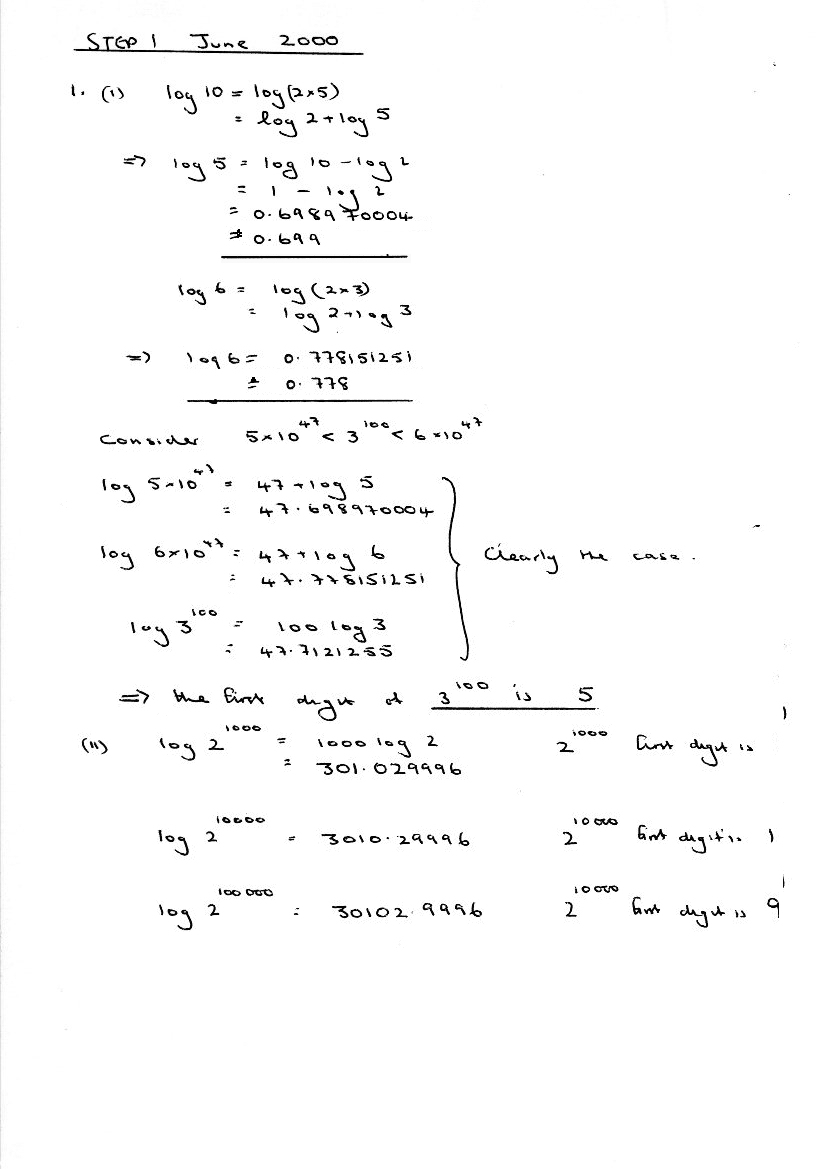 STEP 1 June 2000
1. (i) log 10 = log(2×5)
= log 2 + log 5
⇒ log 5 = log 10 - log 2
= 1 - log 2
= 0.698970004
≑ 0.699
log 6 = log(2×3)
= log 2 + log 3
⇒ log 6 = 0.778151251
≑ 0.778
Consider 5×10^47 < 3^100 < 6×10^47
log 5×10^47 = 47 + log 5
= 47.698970004
log 6×10^47 = 47 + log 6
= 47.778151251
Clearly the case.
log 3^100 = 100 log 3
= 47.7121255
⇒ the first digit of 3^100 is 5
(ii) log 2^1000 = 1000 log 2 2^1000 first digit is 1
= 301.029996
log 2^10000 = 3010.29996 2^10000 first digit is 1
log 2^100000 = 30102.9996 2^10000 first digit is 9